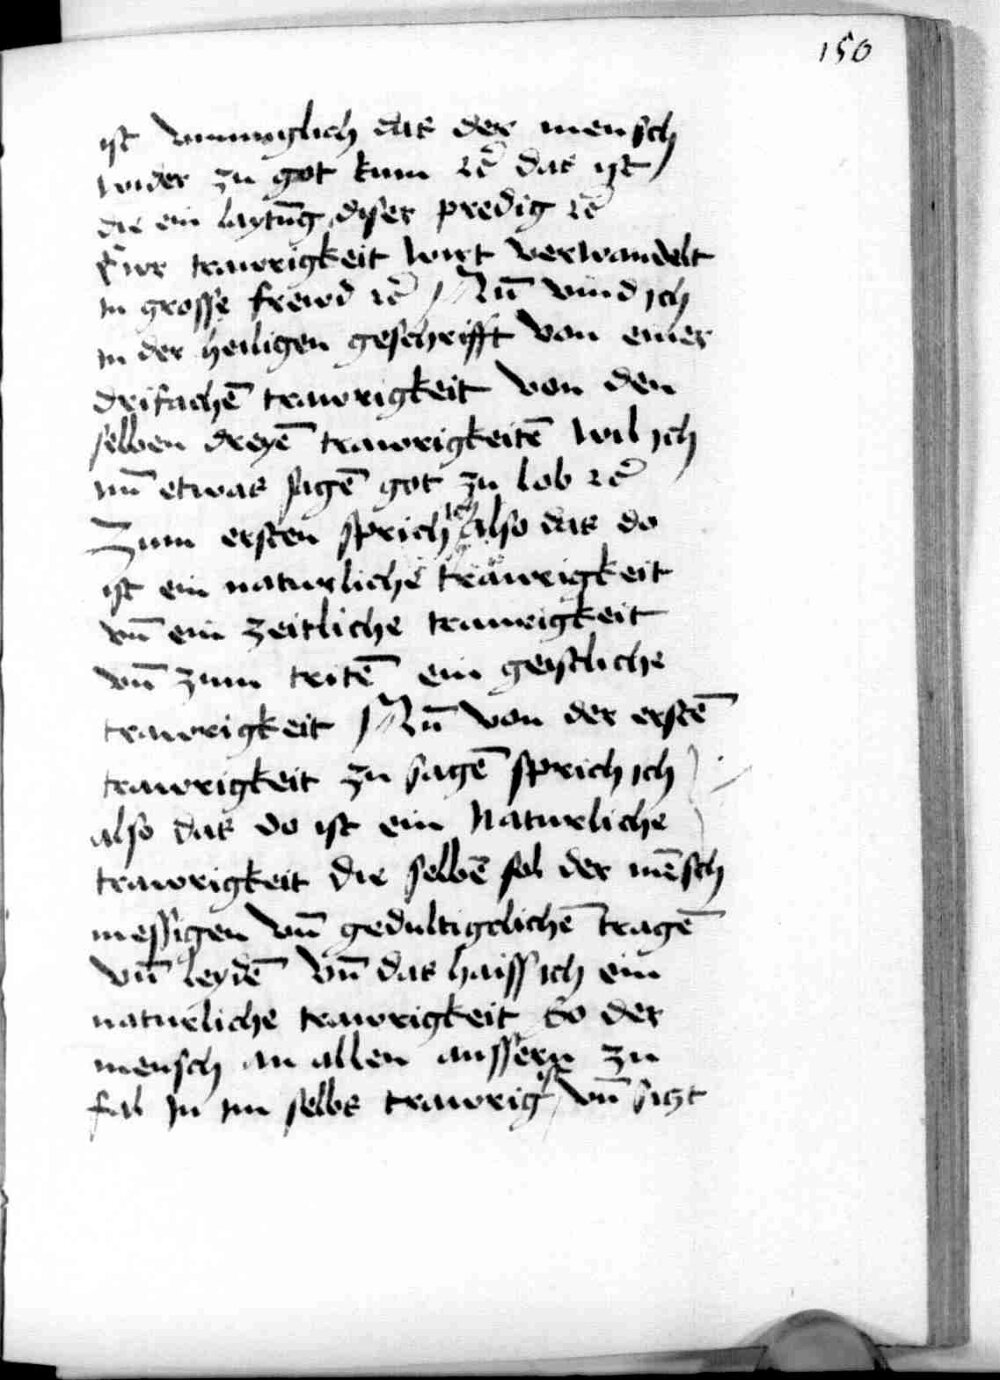 150
ist vnmuglich das der mensch
wider zu got kum ꝛc̄ das ist
die ein laytūg diser predig ꝛc̄
Ewr trawrigkeit wirt verwandelt
In grosse frewd ꝛc̄ Nū vind ich
In der heiligen geschrifft von einer
drifachē trawrigkeit von den
selben dreyē trawrigkeitē wil ich
nū etwas sagē got zu lob ꝛc̄
Zum ersten sprich ich also das do
ist ein naturliche trawrigkeit
vn̄ ein zeitliche traurigkeit
vn̄ zum tritē ein geistliche
trawrigkeit Nū von der erstē
trawrigkeit zu sagē sprich ich
also das do ist ein Naturliche
trawrigkeit die selbē sol der mēsch
messigen vn̄ gedultigclichē tragē
vn̄ leydē vn̄ das haiss ich ein
naturliche trawrigkeit So der
mensch an allen aussern zu
fal In im selbs trawrig ist vn̄ sitzt